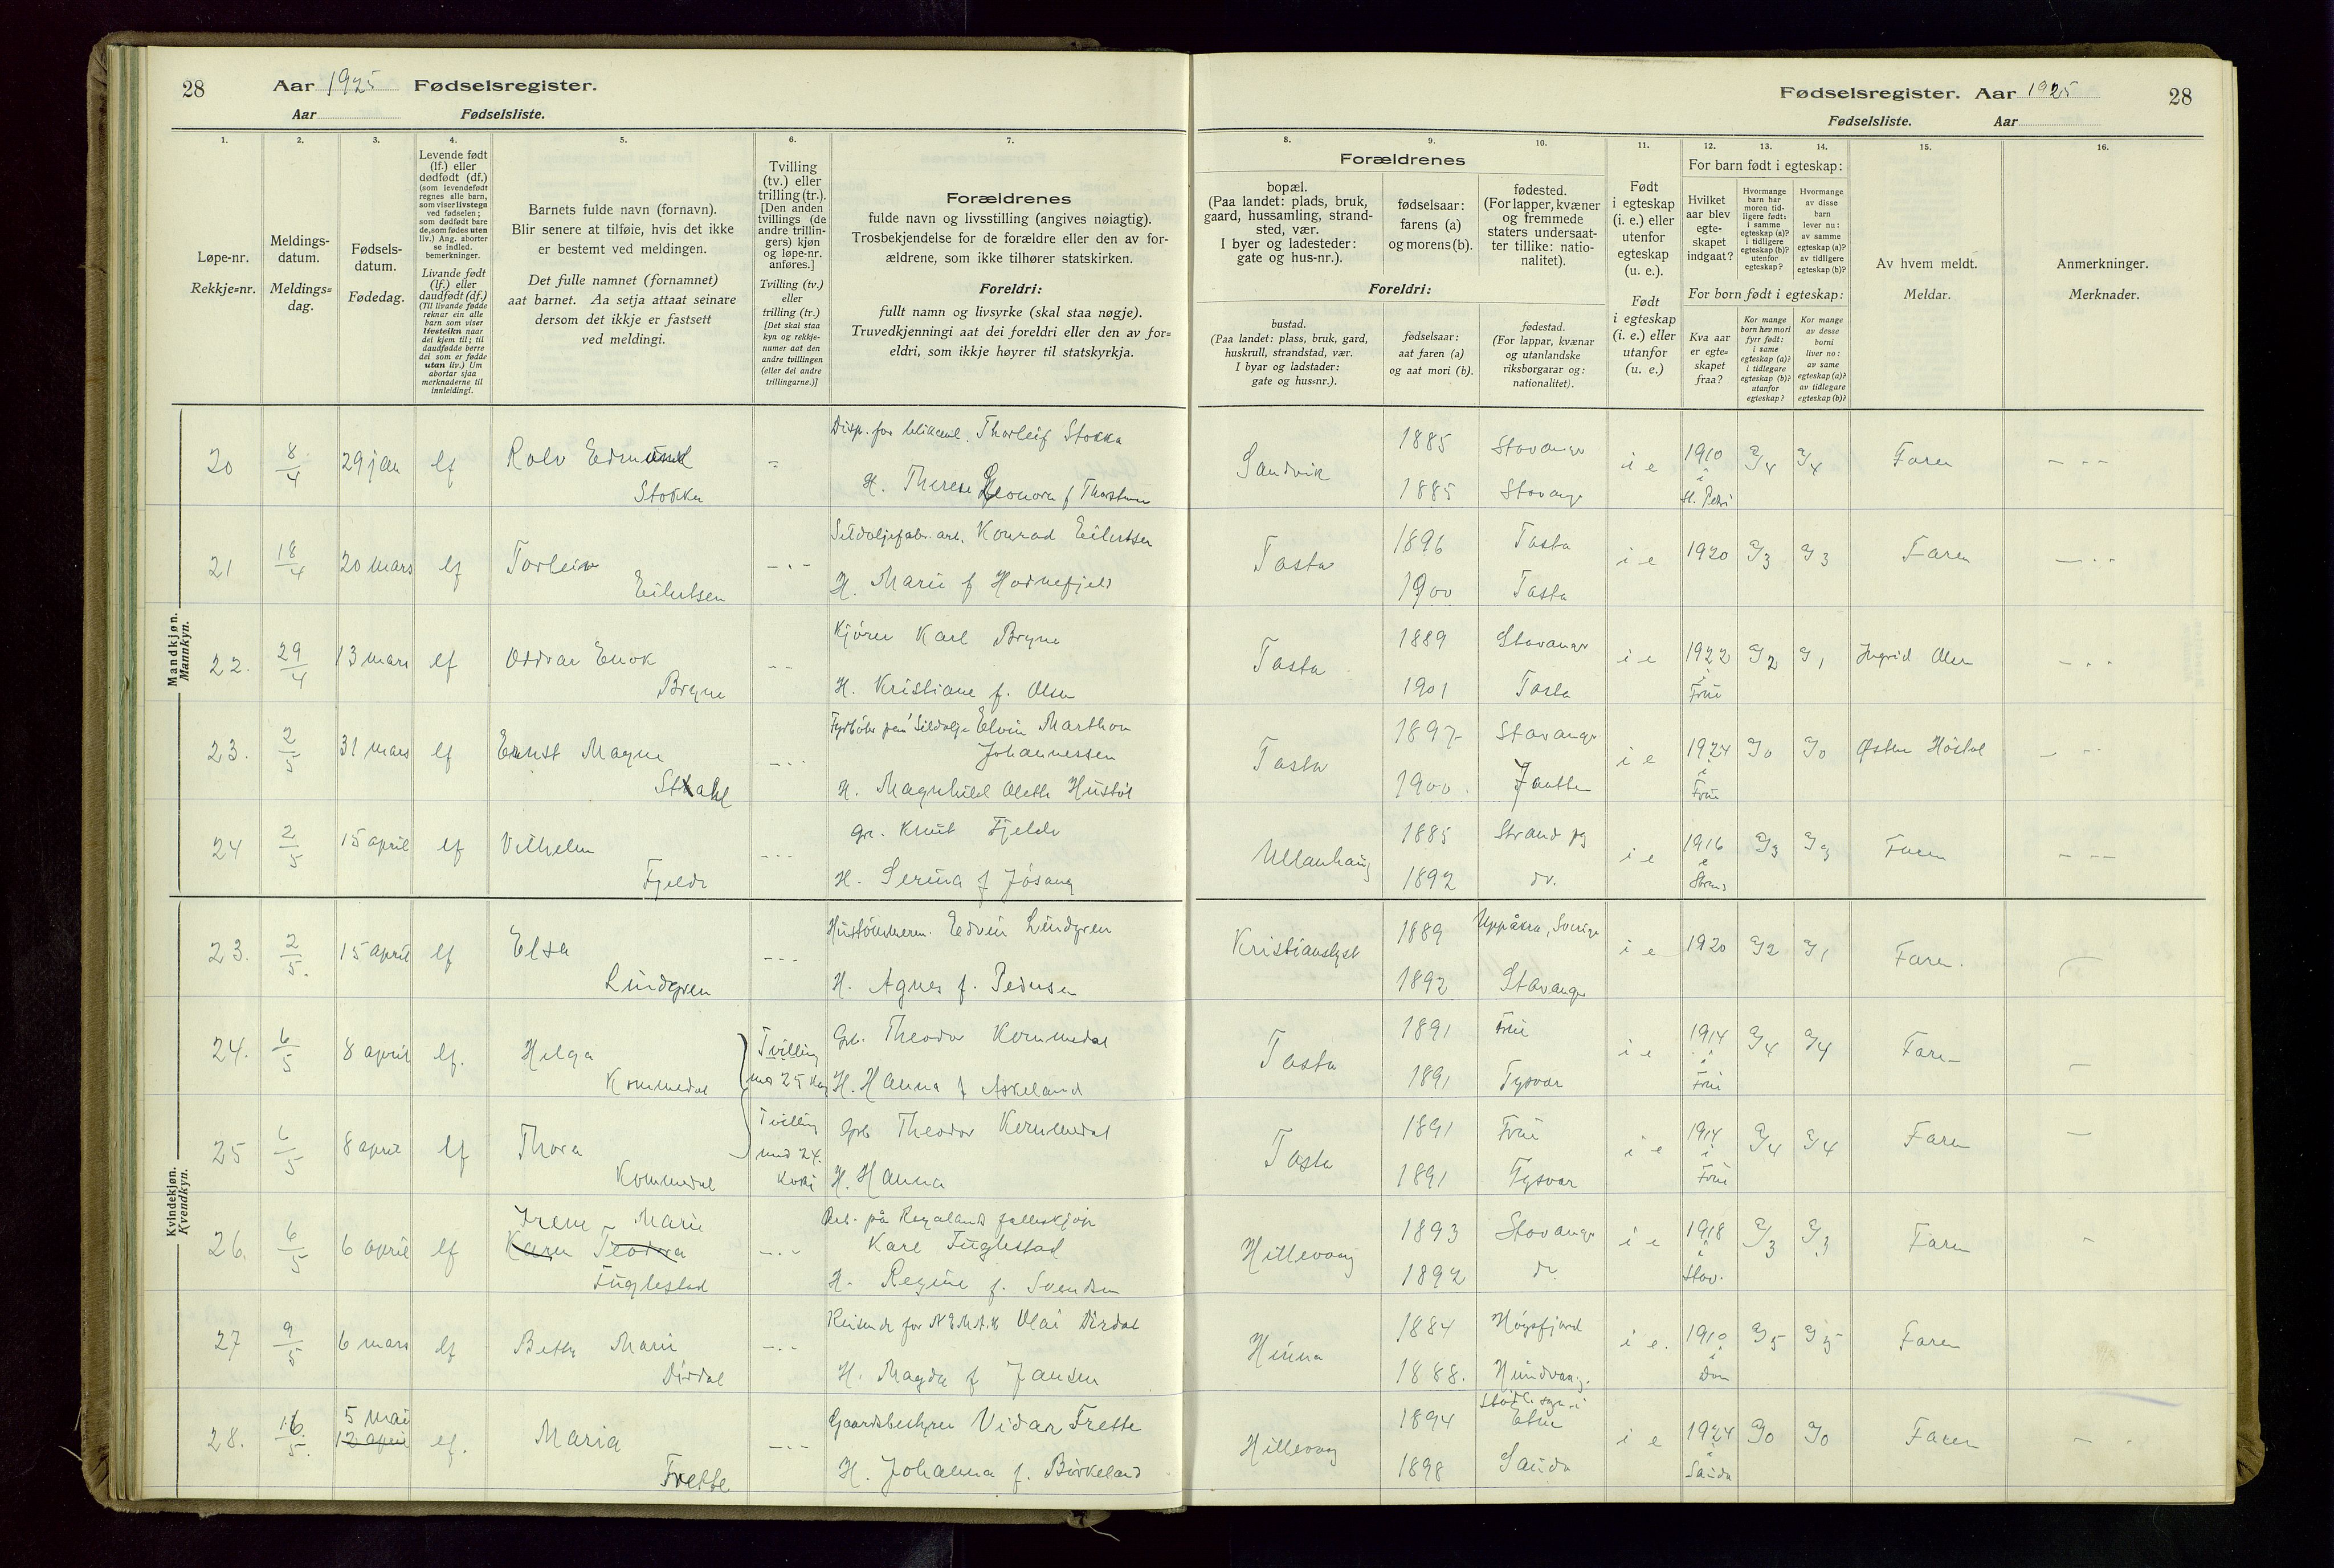 28
Aar 1925 Fødselsregister.
Aar Fødselsliste.
Fødselsregister. Aar 1925
28
Fødselsliste. Aar
1.
2.
3.
4.
5.
6.
7.
8.
9.
10.
11.
12.
13.
14.
15.
16.
Løpe-nr.
Rekkje=nr.
Meldings-
datum.
Meldings=
dag.
Fødsels-
datum.
Fødedag.
Levende født
(lf.) eller
dødfødt (df.)
(som levendefødt
regnes alle barn,
som viser livstegn
ved fødselen;
som dødfødt bare
de, som fødes uten
liv.) Ang. aborter
se indled.
bemerkninger.
Livande født
(lf.) eller
daudfødt (df.)
(Til livande fødde
reknar ein alle
barn som viser
livsteikn naar
dei kjem til; til
daudfødde berre
dei som er fødde
utan liv.) Um
abortar sjaa
merknaderne til
innleidingi.
Barnets fulde navn (fornavn).
Blir senere at tilføie, hvis det ikke
er bestemt ved meldingen.
Det fulle namnet (fornamnet)
aat barnet. Aa setja attaat seinare
dersom det ikkje er fastsett
ved meldingi.
Tvilling
(tv.) eller
trilling (tr.).
[Den anden
tvillings (de
andre trillin-
gers) kjøn
og løpe-nr.
anføres.]
Tvilling (tv.)
eller
trilling (tr.)
[Det skal staa
kyn og rekkje-
numer aat den
andre tvillingen
(eller dei andre
trillingarne.)]
Forældrenes
fulde navn og livsstilling (angives nøiagtig).
Trosbekjendelse for de forældre eller den av for-
ældrene, som ikke tilhører statskirken.
Foreldri:
fullt namn og livsyrke (skal staa nøgje).
Truvedkjenningi aat dei foreldri eller den av for=
eldri, som ikkje høyrer til statskyrkja.
Forældrenes
bopæl.
(Paa landet: plads, bruk,
gaard, hussamling, strand-
sted, vær.
I byer og ladesteder:
gate og hus-nr.).
fødselsaar:
farens (a)
og morens (b).
fødested.
(For lapper, kvæner
og fremmede
staters undersaat-
ter tillike: natio-
nalitet).
Foreldri:
bustad.
(Paa landet: plass, bruk, gard,
huskrull, strandstad, vær.
I byar og ladstader:
gate og hus=nr.).
fødselsaar:
aat faren (a)
og aat mori (b).
fødestad.
(For lappar, kvænar
og utanlandske
riksborgarar og:
nationalitet).
Født
i egteskap
(i. e.) eller
utenfor
egteskap
(u. e.).
Født
i egteskap
(i. e.) eller
utanfor
(u. e.)
For barn født i egteskap:
Hvilket
aar blev
egte-
skapet
indgaat?
Hvormange
barn har
moren tid-
ligere født:
i samme
egteskap (a)?
i tidligere
egteskap (b)?
utenfor
egteskap?
Hvormange
av disse
barn
lever nu:
av samme
egteskap (a)?
av tidligere
egteskap (b)?
For born født i egteskap:
Kva aar
er egte=
skapet
fraa?
Kor mange
born hev mori
fyrr født:
i same
egteskap (a)?
i tidlegare
egteskap (b)?
utanfor
egteskap?
Kor mange
av desse
borni
liver no:
av same
egteskap (a)?
av tidlegare
egteskap (b)?
Av hvem meldt.
Meldar.
Anmerkninger.
Merknader.
Mandkjøn.
Mannkyn.
20 8/4 29 jan lf Rolv Edmund Stokka
Thorleif Stokka
H. Therese Leonora f
Sandvik 1885 Stavanger
1885 Stavanger
i e 1910 i St. Petri 4 4 Faren
21 18/4 20 mars lf Torleiv Eilertsen
Sildoljefabr. arb. Konrad Eilertsen
H. Marie f Hodnefjeld
Tasta 1896 Tasta
1900 Tasta
i e 1920 3 3 Faren
22. 29/4 13 mars lf Oddvar Enok Bryne
Kjører Karl Bryne
H. Kristiane f. Olsen
Tasta 1889 Stavanger
1901 Tasta
i e 1922 i Frue 2 1 Ingrid Olsen
23. 2/5 31 mars lf Ernst Magne Strahl
Elvin Marthon
Johannessen
H. Magnhild Aleth Hustöl
Tasta 1897 Stavanger
1900. Jaatten
i e 1924 i Frue 0 0
24 2/5 15 april lf Vilhelm Fjelde
gr. Knut Fjelde
H. Serina f Jösang
Ullanhaug 1885 Strand pg
1892 do.
i e 1916 i Strand 3 3 Faren
Kvindekjøn.
Kvendkyn.
23. 2/5. 15 april lf Elsa Lindgren
Edvin Lindgren
H. Agnes f. Pedersen
Kristianslyst 1889 Uppåkra, Sverige
1892 Stavanger
i e 1920 2 1 Faren.
24. 6/5 8 april lf. Helga Kommedal
Tvilling
med 25 kv
Grb. Theodor Kommedal
H. Hanna f Askeland
Tasta 1891 Frue
1891 Tysvær
i e 1914 i Frue 4 4 Faren
25 6/5 8 april lf Thora Kommedal
Tvilling
med 24.
Grb Theodor Kommedal
H. Hanna
Tasta 1891 Frue
1891 Tysvær
i e 1914 i Frue 4 4 Faren
26. 6/5 6 april lf Irene Marie
Karen Teodora
Fuglestad
på Rogaland felleskjøp
Karl Fuglestad
H. Regine f. Svendsen
Hillevaag 1893 Stavanger
1892 do
i e 1918 i Stav. 3 3 Faren
27 9/5 6 mars lf Betty Marie Dirdal
Reisende for Olai Dirdal
H. Magda f Jansen
Hinna 1884 Høgsfjord
1888. Hundvaag.
i e. 1910 i Dom 5 5 Faren
28. 16/5. 5 mai
12 april
lf. Maria Frette
Gaardsbestyrer Vidar Frette
H. Johanna f. Birkeland
Hillevaag 1894 Etne
1898 Sauda
i e 1924 i Sauda 0 0 Faren